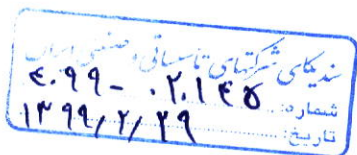 سندیکای شرکتهای تاسیساتی و صنعتی ایران
شماره: ۴۰۹۹-۰۲۱۴۵
تاریخ: ۱۳۹۹/۲/۲۹